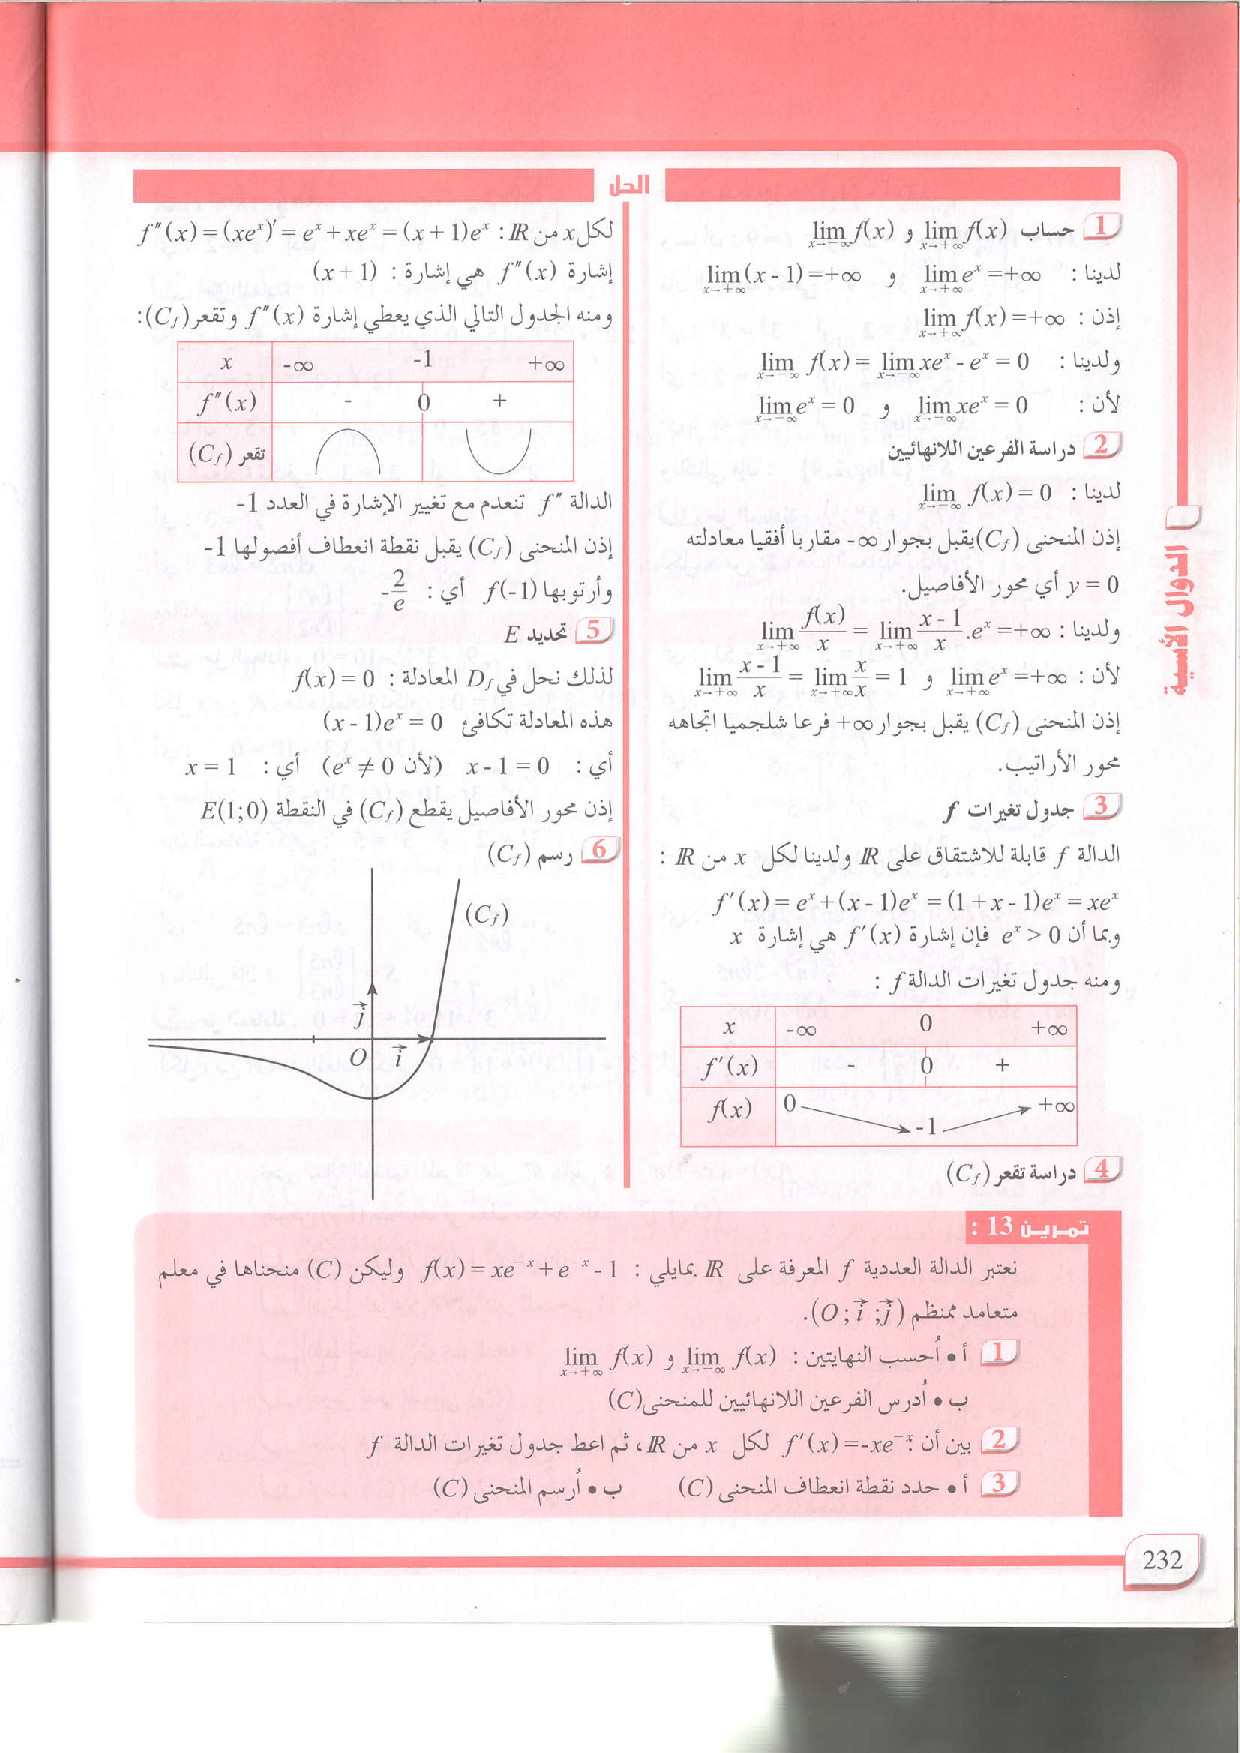 الحل
1 حساب lim f(x) x→+∞ و lim f(x) x→-∞
لدينا : lim eˣ = +∞ x→+∞ و lim (x - 1) = +∞ x→+∞
إذن : lim f(x) = +∞ x→+∞
ولدينا : lim f(x) = lim xeˣ - eˣ = 0 x→-∞ x→-∞
لأن : lim xeˣ = 0 x→-∞ و lim eˣ = 0 x→-∞
2 دراسة الفرعين اللانهائيين
لدينا : lim f(x) = 0 x→-∞
إذن المنحنى (Cf) يقبل بجوار -∞ مقاربا أفقيا معادلته
y = 0 أي محور الأفاصيل.
ولدينا : lim f(x)/x = lim (x - 1)/x .eˣ = +∞ x→+∞ x→+∞
لأن : lim eˣ = +∞ x→+∞ و lim (x - 1)/x = lim x/x = 1 x→+∞ x→+∞
إذن المنحنى (Cf) يقبل بجوار +∞ فرعا شلجميا اتجاهه
محور الأراتيب.
3 جدول تغيرات f
الدالة f قابلة للاشتقاق على IR ولدينا لكل x من IR :
f'(x) = eˣ + (x - 1)eˣ = (1 + x - 1)eˣ = xeˣ
وبما أن eˣ > 0 فإن إشارة f'(x) هي إشارة x
ومنه جدول تغيرات الدالة f :
x -∞ 0 +∞
f'(x) - 0 +
f(x) 0 -1 +∞
4 دراسة تقعر (Cf)
لكل x من IR : f"(x) = (xeˣ)' = eˣ + xeˣ = (x + 1)eˣ
إشارة f"(x) هي إشارة : (x + 1)
ومنه الجدول التالي الذي يعطي إشارة f"(x) وتقعر (Cf):
x -∞ -1 +∞
f"(x) - 0 +
تقعر (Cf)
الدالة f" تنعدم مع تغيير الإشارة في العدد -1
إذن المنحنى (Cf) يقبل نقطة انعطاف أفصولها -1
وأرتوبها f(-1) أي : -2/e
5 تحديد E
لذلك نحل في Df المعادلة : f(x) = 0
هذه المعادلة تكافئ (x - 1)eˣ = 0
أي : x - 1 = 0 (لأن eˣ ≠ 0) أي : x = 1
إذن محور الأفاصيل يقطع (Cf) في النقطة E(1;0)
6 رسم (Cf)
(Cf)
j
O i
الدوال الأسية
تمرين 13 :
نعتبر الدالة العددية f المعرفة على IR بمايلي : f(x) = xe⁻ˣ + e⁻ˣ - 1 وليكن (C) منحناها في معلم
متعامد ممنظم (O; i; j).
1 أ • أحسب النهايتين : lim f(x) x→-∞ و lim f(x) x→+∞
ب • أدرس الفرعين اللانهائيين للمنحنى (C)
2 بين أن : f'(x) = -xe⁻ˣ لكل x من IR، ثم اعط جدول تغيرات الدالة f
3 أ • حدد نقطة انعطاف المنحنى (C) ب • أرسم المنحنى (C)
232